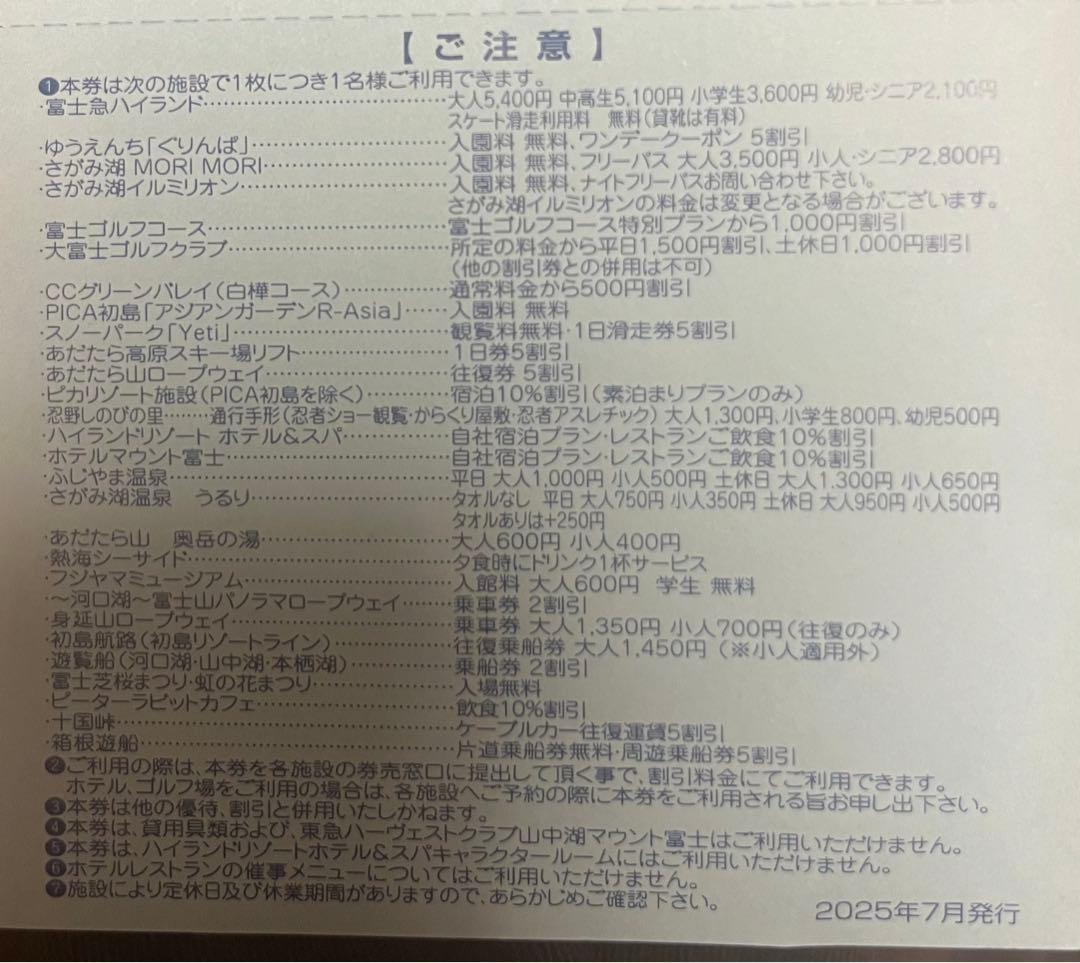 【ご注意】
❶本券は次の施設で1枚につき1名様ご利用できます。
・富士急ハイランド……………………………大人5,400円 中高生5,100円 小学生3,600円 幼児・シニア2,100円
スケート滑走利用料 無料(貸靴は有料)
・ゆうえんち「ぐりんぱ」………………………入園料 無料、ワンデークーポン 5割引
・さがみ湖 MORI MORI………………………入園料 無料、フリーパス 大人3,500円 小人・シニア2,800円
・さがみ湖イルミリオン…………………………入園料 無料、ナイトフリーパスお問い合わせ下さい。
さがみ湖イルミリオンの料金は変更となる場合がございます。
・富士ゴルフコース……………………………富士ゴルフコース特別プランから1,000円割引
・大富士ゴルフクラブ…………………………所定の料金から平日1,500円割引、土休日1,000円割引
(他の割引券との併用は不可)
・CCグリーンバレイ(白樺コース)……………通常料金から500円割引
・PICA初島「アジアンガーデンR-Asia」……入園料 無料
・スノーパーク「Yeti」…………………………観覧料無料・1日滑走券5割引
・あだたら高原スキー場リフト…………………1日券5割引
・あだたら山ロープウェイ………………………往復券 5割引
・ピカリゾート施設(PICA初島を除く)…………宿泊10%割引(素泊まりプランのみ)
・忍野しのびの里………通行手形(忍者ショー観覧・からくり屋敷・忍者アスレチック) 大人1,300円、小学生800円、幼児500円
・ハイランドリゾート ホテル&スパ……………自社宿泊プラン・レストランご飲食10%割引
・ホテルマウント富士……………………………自社宿泊プラン・レストランご飲食10%割引
・ふじやま温泉…………………………………平日 大人1,000円 小人500円 土休日 大人1,300円 小人650円
・さがみ湖温泉 うるり…………………………タオルなし 平日 大人750円 小人350円 土休日 大人950円 小人500円
タオルありは+250円
・あだたら山 奥岳の湯…………………………大人600円 小人400円
・熱海シーサイド…………………………………夕食時にドリンク1杯サービス
・フジヤマミュージアム…………………………入館料 大人600円 学生 無料
・〜河口湖〜富士山パノラマロープウェイ………乗車券 2割引
・身延山ロープウェイ……………………………乗車券 大人1,350円 小人700円(往復のみ)
・初島航路(初島リゾートライン)………………往復乗船券 大人1,450円 (※小人適用外)
・遊覧船(河口湖・山中湖・本栖湖)……………乗船券 2割引
・富士芝桜まつり・虹の花まつり…………………入場無料
・ピーターラビットカフェ…………………………飲食10%割引
・十国峠……………………………………………ケーブルカー往復運賃5割引
・箱根遊船…………………………………………片道乗船券無料・周遊乗船券5割引
❷ご利用の際は、本券を各施設の券売窓口に提出して頂く事で、割引料金にてご利用できます。
ホテル、ゴルフ場をご利用の場合は、各施設へご予約の際に本券をご利用される旨お申し出下さい。
❸本券は他の優待、割引と併用いたしかねます。
❹本券は、貸用具類および、東急ハーヴェストクラブ山中湖マウント富士はご利用いただけません。
❺本券は、ハイランドリゾートホテル&スパキャラクタールームにはご利用いただけません。
❻ホテルレストランの催事メニューについてはご利用いただけません。
❼施設により定休日及び休業期間がありますので、あらかじめご確認下さい。
2025年7月発行